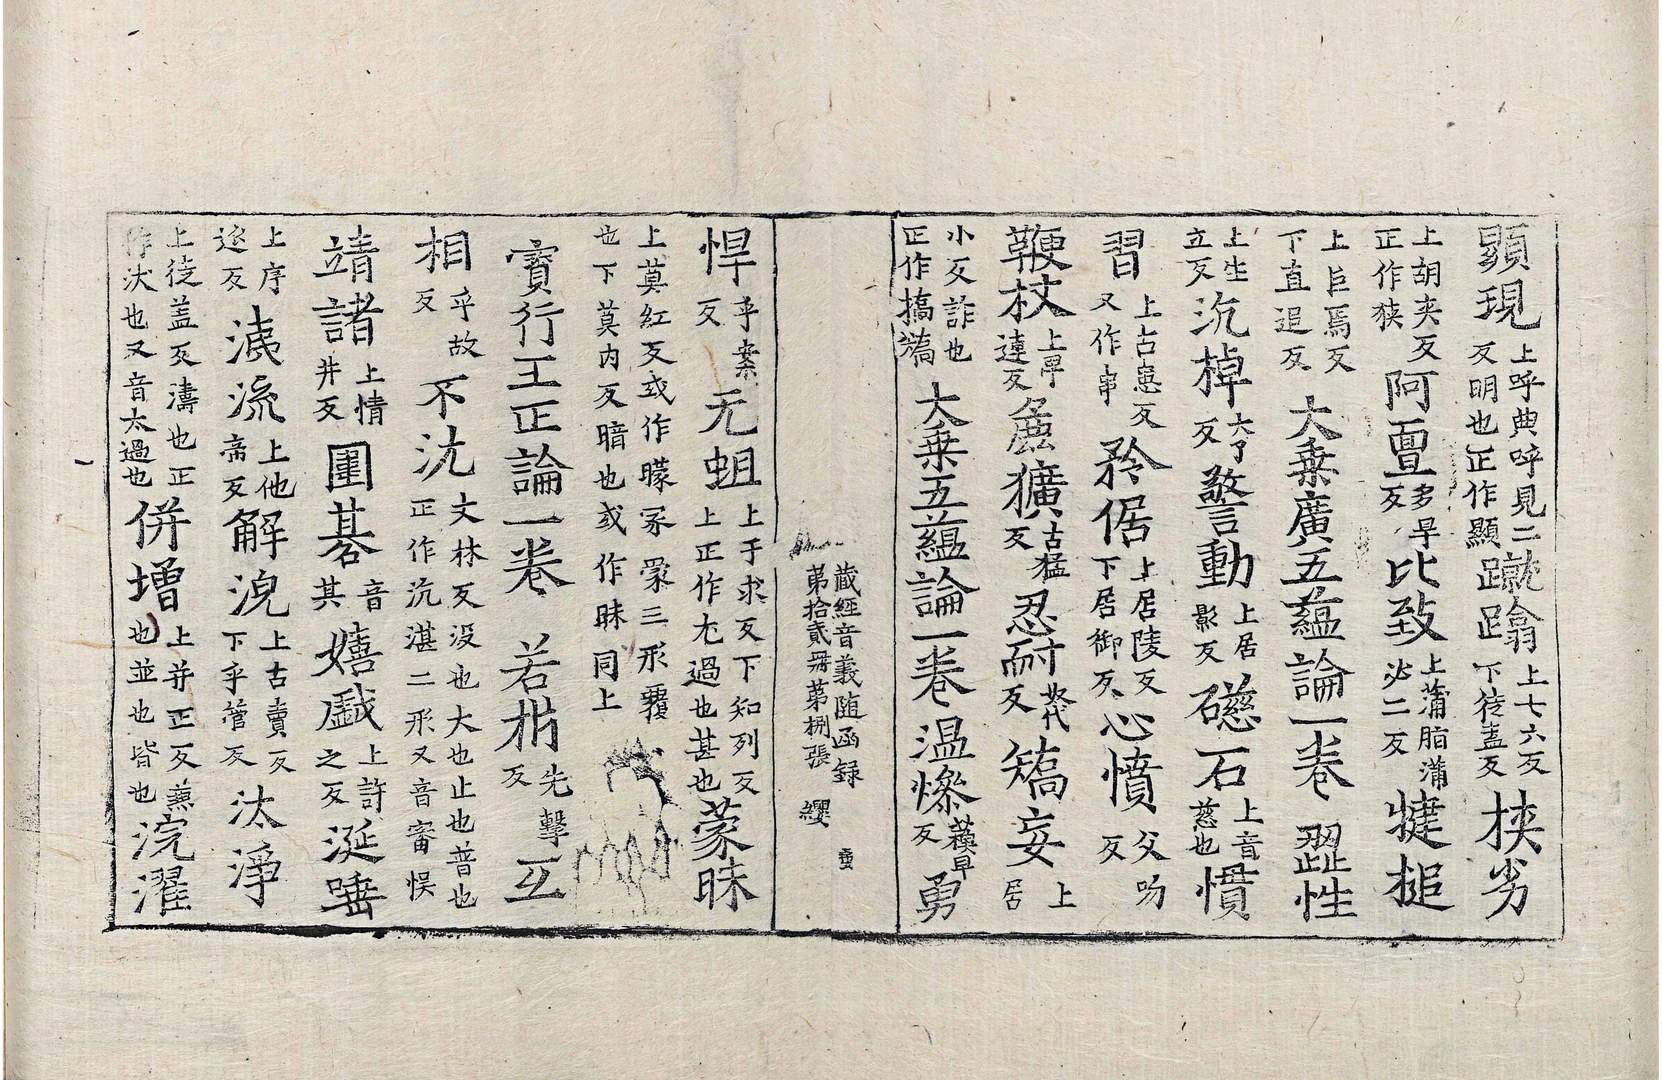 顕現上呼典呼見二反明也正作顯蹴蹹上七六反下徒盍反狹劣
上胡夾反正作狭阿亶多旱反比致上蒲脂蒲必二反揵槌
上巨焉反下直追反大乗廣五蘊論一巻澀性
上生立反沉棹大了反警動上居影反磁石上音慈也慣
習上古患反又作串矜倨上居陵反下居御反心憤父吻反
鞭杖上卑連反麁獷古猛反忍耐奴代反矯妄上居
小反詐也正作撟𥡴大乗五蘊論一巻温燥蘓早反勇
藏經音義随函録 第拾貳冊第捌張 纓
悍乎案反无蛆上于求反下知列反上正作尤過也甚也蒙昧
上莫紅反或作矇冡䝉三形覆也下莫内反暗也或作昧同上
寳行王正論一巻 若析先擊反互
相乎故反不沈文林反没也大也止也普也正作沉湛二形又音審悮
靖諸上情井反圍碁音其嬉戯上許之反涎唾
上序延反洟流上他帝反解浼上古賣反下乎管反汰淨
上徒盖反濤也正作汏也又音太過也併增上并正反兼也並也皆也浣濯